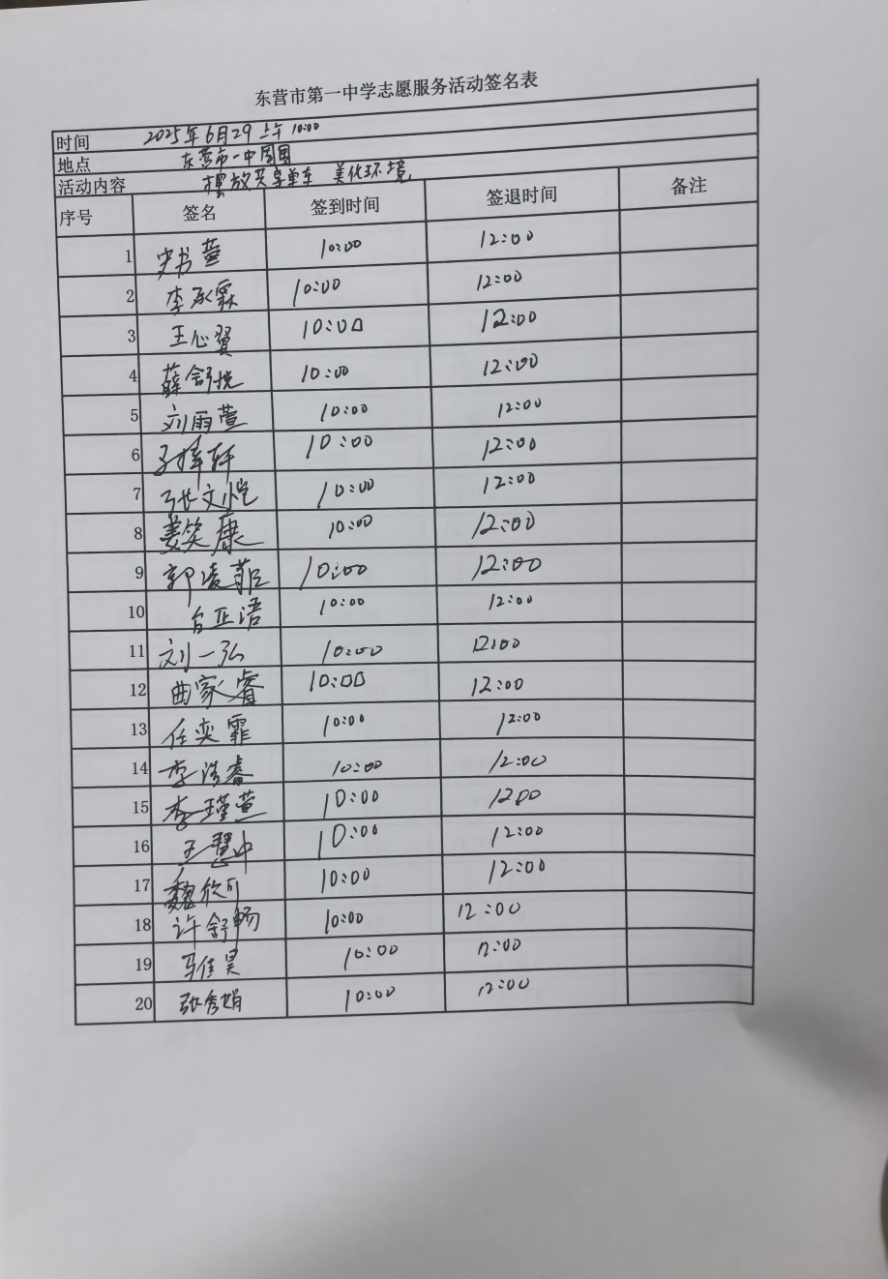 东营市第一中学志愿服务活动签名表
时间 2025年6月29上午10:00
地点 东营市一中周围
活动内容 摆放共享单车 美化环境
序号 签名 签到时间 签退时间 备注
1 宋书萱 10:00 12:00
2 李承霖 10:00 12:00
3 王心翼 10:00 12:00
4 薛舒悦 10:00 12:00
5 刘雨萱 10:00 12:00
6 轩 10:00 12:00
7 张文悦 10:00 12:00
8 姜笑康 10:00 12:00
9 郭凌菲 10:00 12:00
10 台正语 10:00 12:00
11 刘一弘 10:00 12:00
12 曲家睿 10:00 12:00
13 任奕霏 10:00 12:00
14 李浩睿 10:00 12:00
15 李瑾萱 10:00 1200
16 王慧中 10:00 12:00
17 魏欣可 10:00 12:00
18 许舒畅 10:00 12:00
19 马佳昊 10:00 12:00
20 张秀娟 10:00 12:00